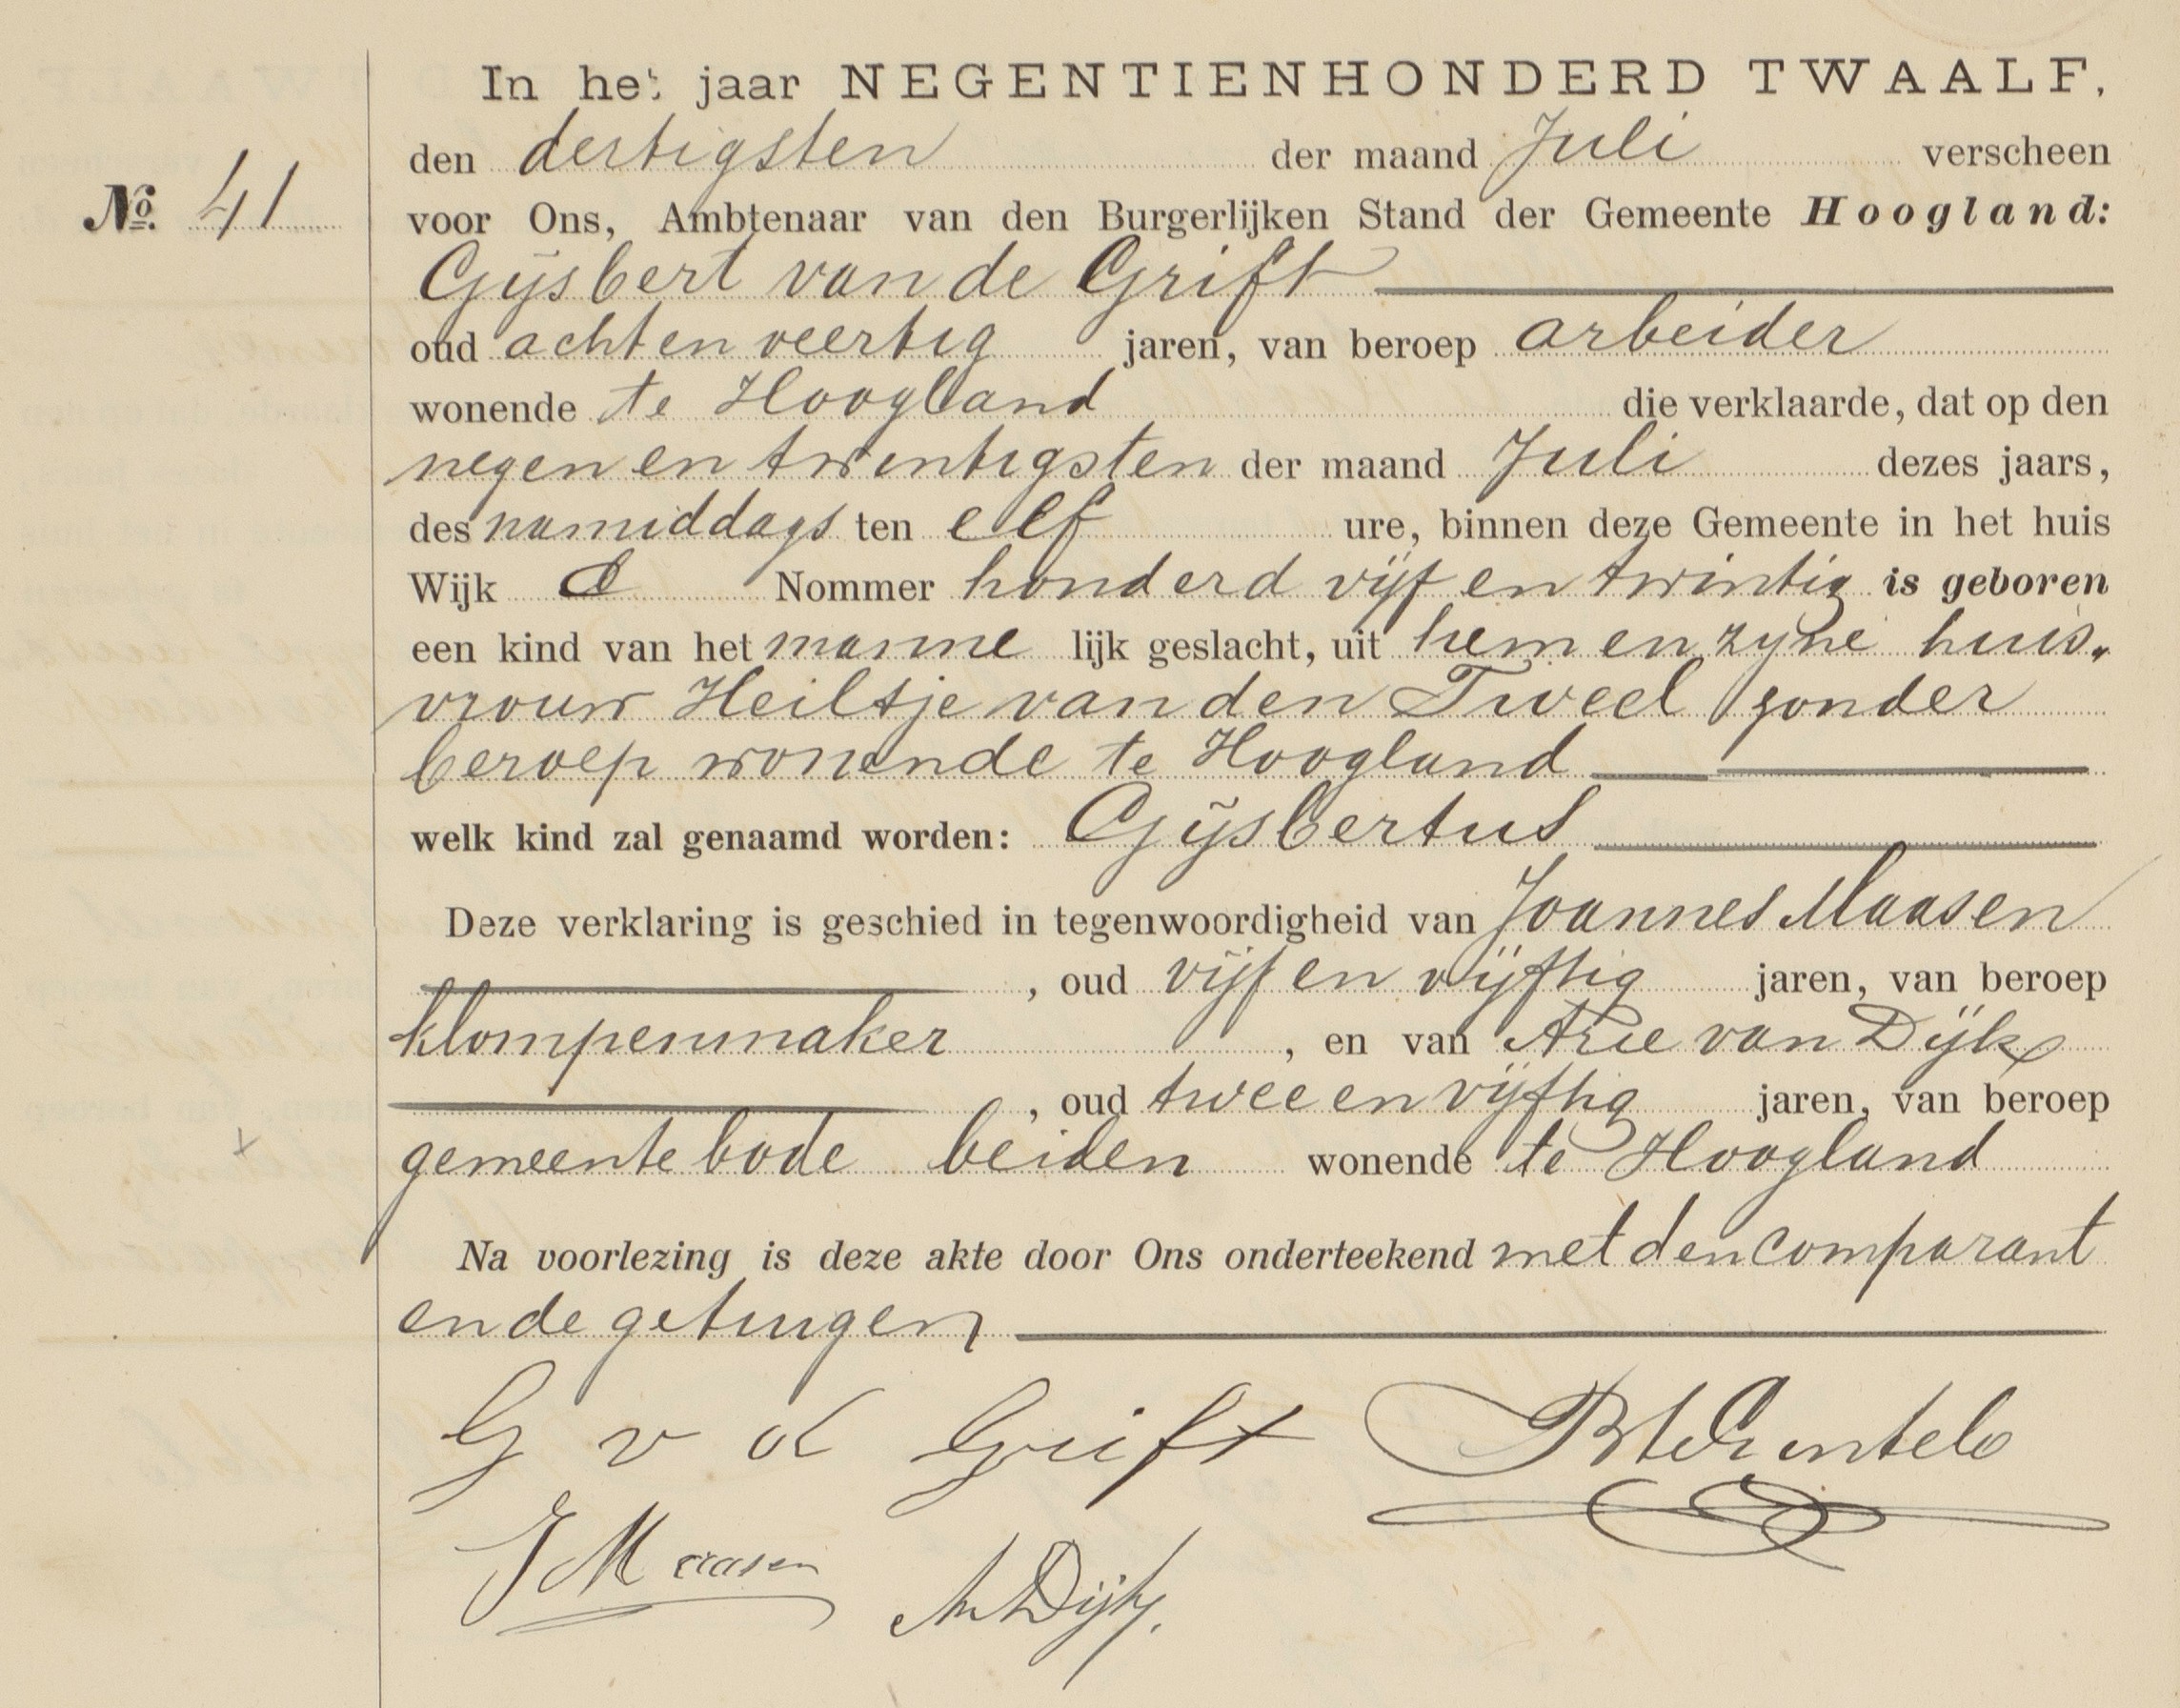 In het jaar NEGENTIENHONDERD TWAALF,
den dertigsten der maand Juli verscheen
No. 41
voor Ons, Ambtenaar van den Burgerlijken Stand der Gemeente Hoogland:
Gijsbert van de Grift
oud acht en veertig jaren, van beroep arbeider
wonende te Hoogland die verklaarde, dat op den
negen en twintigsten der maand Juli dezes jaars,
des namiddags ten elf ure, binnen deze Gemeente in het huis
Wijk Nommer honderd vijf en twintig is geboren
een kind van het manne lijk geslacht, uit hem en zijne huis„
vrouw Heiltje van den Tweel zonder
beroep wonende te Hoogland
welk kind zal genaamd worden: Gijsbertus
Deze verklaring is geschied in tegenwoordigheid van Joannes Maasen
, oud vijf en vijftig jaren, van beroep
klompenmaker , en van Arie van Dijk
, oud twee en vijftig jaren, van beroep
gemeentebode beiden wonende te Hoogland
Na voorlezing is deze akte door Ons onderteekend met den comparant
en de getuigen
G v d Grift
J Maasen AvDijk.